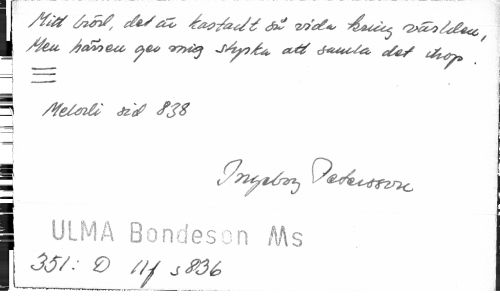 Mitt bröd, det är kastadt så vida kring världen,
Men härren gev mig styrka att samla det ihop.
Melodi sid 838
Ingeborg Petersson
ULMA Bondeson Ms
351: D 11f s 836